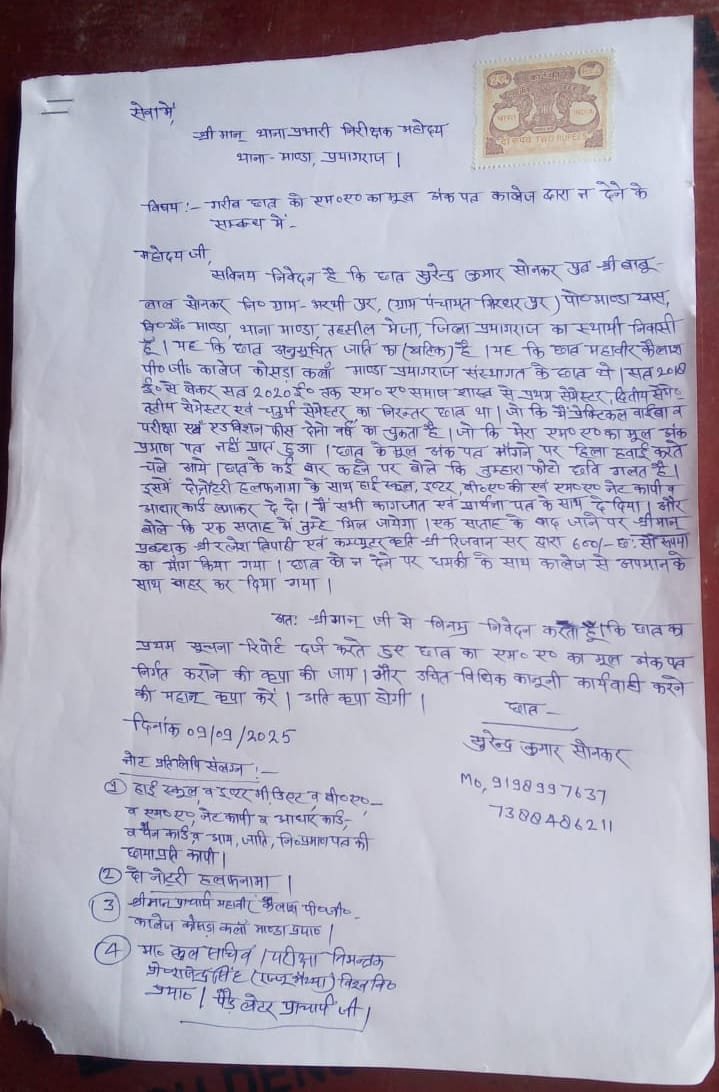 सेवा में,
श्री मान् थाना प्रभारी निरीक्षक महोदय
थाना - माण्डा, प्रयागराज।
भारत
INDIA
दो रुपये TWO RUPEES
विषय :- गरीब छात्र को एम०ए० का मूल अंक पत्र कालेज द्वारा न देने के
सम्बन्ध में-
महोदय जी,
सविनय निवेदन है कि छात्र सुरेन्द्र कुमार सोनकर पुत्र श्री बाबू-
लाल सोनकर नि० ग्राम- भरभी पुर, (ग्राम पंचायत गिरधर पुर) पो० माण्डा खास,
वि०खं० माण्डा, थाना माण्डा, तहसील मेजा, जिला प्रयागराज का स्थायी निवासी
हूँ। यह कि छात्र अनुसूचित जाति का (खटिक) है। यह कि छात्र महावीर कैलाश
पी० जी० कालेज कोसड़ा कलाँ माण्डा प्रयागराज संस्थागत के छात्र थे। सत्र 2018
ई० से लेकर सत्र 2020 ई० तक एम० ए० समाज शास्त्र से प्रथम सेमेस्टर, द्वितीय सेमे०
तृतीय सेमेस्टर एवं चतुर्थ सेमेस्टर का निरन्तर छात्र था। जो कि मैं प्रेक्टिकल वाईबा व
परीक्षा एवं एडमिशन फीस दोनो वर्ष का चुकता है। जो कि मेरा एम०ए० का मूल अंक
प्रमाण पत्र नहीं प्राप्त हुआ। छात्र के मूल अंक पत्र माँगने पर हिला हवाई करते
चले आये। छात्र के कई बार कहने पर बोले कि तुम्हारा फोटो छवि गलत है।
इसमें दो नोटरी हलफनामा के साथ हाई स्कूल, इण्टर, बी०ए० की एवं एम०ए० नेट कापी व
आधार कार्ड लगाकर दे दो। मैं सभी कागजात एवं प्रार्थना पत्र के साथ दे दिया। और
बोले कि एक सप्ताह में तुम्हे मिल जायेगा। एक सप्ताह के बाद जाने पर श्रीमान्
प्रबन्धक श्री रत्नेश त्रिपाठी एवं कम्प्यूटर कृति श्री रिजवान सर द्वारा 600/- छ: सौ रूपया
का माँग किया गया। छात्र को न देने पर धमकी के साथ कालेज से अपमान के
साथ बाहर कर दिया गया।
अतः श्रीमान् जी से विनम्र निवेदन करता हूँ। कि छात्र का
प्रथम सूचना रिपोर्ट दर्ज करते हुए छात्र का एम० ए० का मूल अंक पत्र
निर्गत कराने की कृपा की जाय। और उचित विधिक कानूनी कार्यवाही करने
की महान् कृपा करें। अति कृपा होगी।
छात्र -
दिनांक 09/09/2025
सुरेन्द्र कुमार सोनकर
Mo, 9198997637
7388486211
नोट प्रतिलिपि संलग्न :-
① हाई स्कूल, व इण्टर मी डिएट व बी०ए०-
व एम०ए०, नेट कापी व आधार कार्ड,-
व पैन कार्ड व आय, जाति, नि०प्रमाण पत्र की
छाया प्रति कापी।
② दो नोटरी हलफनामा।
③ श्रीमान प्राचार्य महावीर कैलाश पी०जी०-
कालेज कोसड़ा कलाँ माण्डा प्रया०।
④ मा० कुल सचिव। परीक्षा नियन्त्रक
प्रो० राजेन्द्र सिंह (रज्जू भैय्या) विश्व वि०
प्रया०। पैड लेटर प्राचार्य जी।